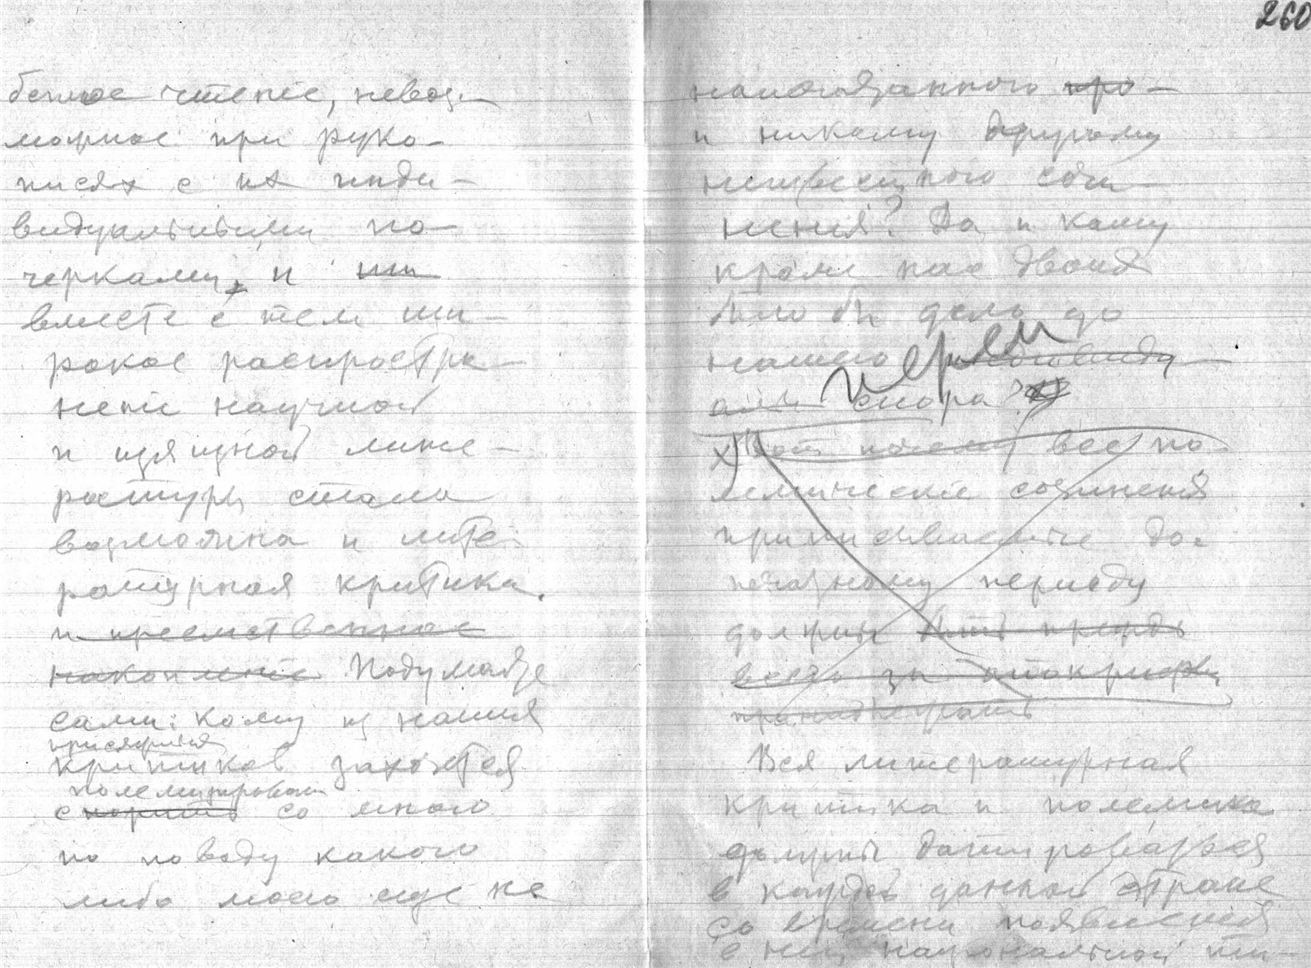 260
беглое чтение, невоз-
можное при руко-
писях с их инди-
видуальными по-
черками, и
вместе с тем ши-
рокое распростра-
нение научной
и изящной лите-
ратуры стала
возможна и лите-
ратурная критика.
и преемственное
накопление Подумайте
сами: кому из наших
присяжных
критиков захочется
полемизировать
спорить со мною
по поводу какого
либо моего еще не
напечатанного про-
и никому другому
неизвестного сочи-
нения? Да и кому
кроме нас двоих
было бы дело до
нашего
спора?
Вот почему все по-
лемические сочинения
приписываемые до-
печатному периоду
должны быть прежде
всего за апокрифы
Вся литературная
критика и полемика
должны датироваться
в каждой данной стране
со времени появления
в ней национальной ти-